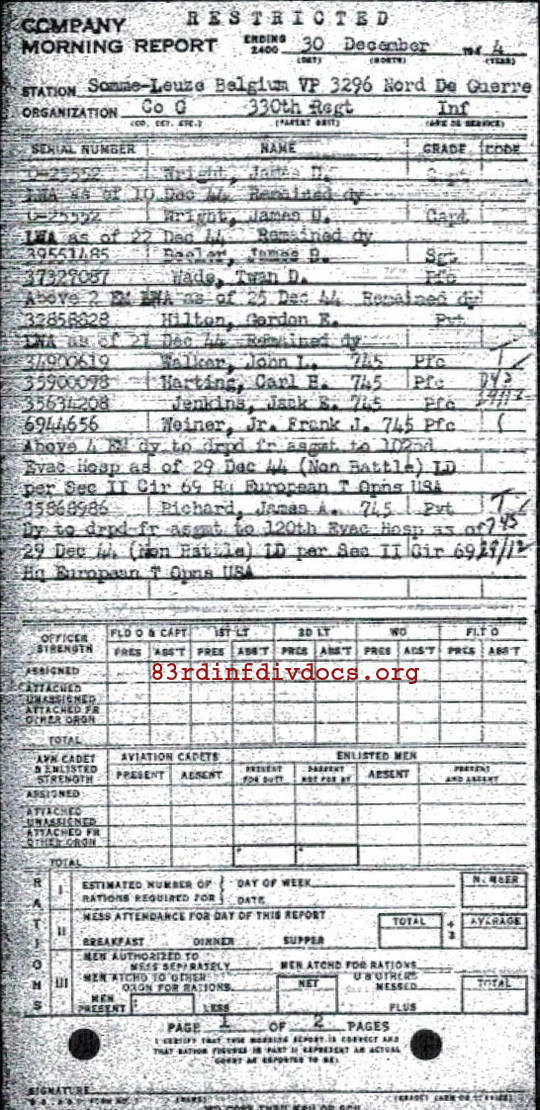 RESTRICTED
COMPANY
MORNING REPORT ENDING 2400 30 December 194 4
(DAY) (MONTH) (YEAR)
STATION Somme-Leuze Belgium VP 3296 Nord De Guerre
ORGANIZATION Co G 330th Regt Inf
(CO, DET, ETC.) (PARENT UNIT) (ARM OR SERVICE)
SERIAL NUMBER NAME GRADE CODE
O-25552 Wright, James D. Capt
LWA as of 10 Dec 44 Remained dy
O-25552 Wright, James D. Capt
LWA as of 22 Dec 44 Remained dy
39551485 James Sgt
37329087 Wade, Twan D. Pfc
Above 2 EM LWA as of 25 Dec 44 Remained dy
32858828 Hilton, Gordon E. Pvt
LWA as of 21 Dec 44 Remained dy
34900619 Walker, John L. 745 Pfc
35900098 Harting, Carl H. 745 Pfc
35634208 Jenkins, Jack E. 745 Pfc
6944656 Weiner, Jr. Frank J. 745 Pfc
Above 4 EM dy to drpd fr asgmt to 102nd
Evac Hosp as of 29 Dec 44 (Non Battle) LD
per Sec II Cir 69 Hq European T Opns USA
35868986 Richard, James A. 745 Pvt
Dy to drpd fr asgmt to 120th Evac Hosp as of
29 Dec 44 (Non Battle) LD per Sec II Cir 69
Hq European T Opns USA
OFFICER STRENGTH FLD O & CAPT 1ST LT 2D LT WO FLT O
PRES ABS'T PRES ABS'T PRES ABS'T PRES ABS'T PRES ABS'T
ASSIGNED
83rdinfdivdocs.org
ATTACHED UNASSIGNED
ATTACHED FR OTHER ORGN
TOTAL
AVN CADET & ENLISTED STRENGTH AVIATION CADETS ENLISTED MEN
PRESENT ABSENT PRESENT FOR DUTY PRESENT NOT FOR DY ABSENT PRESENT AND ABSENT
ASSIGNED
ATTACHED UNASSIGNED
ATTACHED FR OTHER ORGN
TOTAL
RATIONS
I ESTIMATED NUMBER OF RATIONS REQUIRED FOR DAY OF WEEK DATE NUMBER
II MESS ATTENDANCE FOR DAY OF THIS REPORT TOTAL ÷ 3 AVERAGE
BREAKFAST DINNER SUPPER
III MEN AUTHORIZED TO MESS SEPARATELY MEN ATCHD FOR RATIONS
MEN ATCHD TO OTHER ORGN FOR RATIONS NET OTHERS MESSED TOTAL
MEN PRESENT LESS PLUS
PAGE 1 OF 2 PAGES
I CERTIFY THAT THIS MORNING REPORT IS CORRECT AND
THAT RATION FIGURES IN PART II REPRESENT AN ACTUAL
COUNT AS REPORTED TO ME.
SIGNATURE